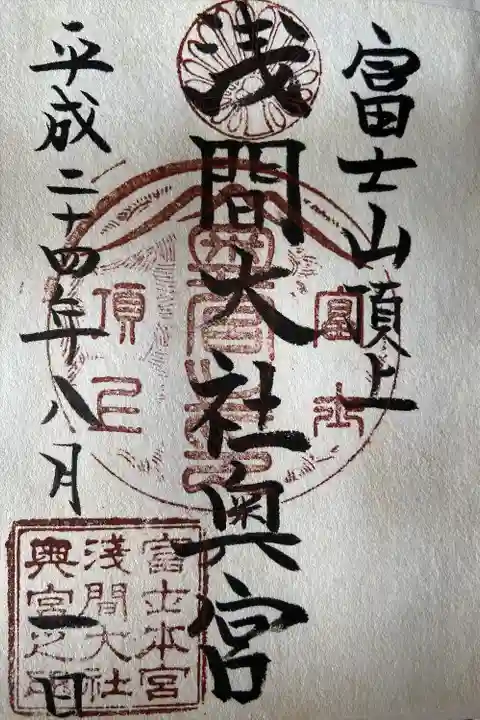 富士山頂上
浅間大社奥宮
平成二十四年八月一日
富士
頂上
富士本宮
淺間大社
奥宮之印